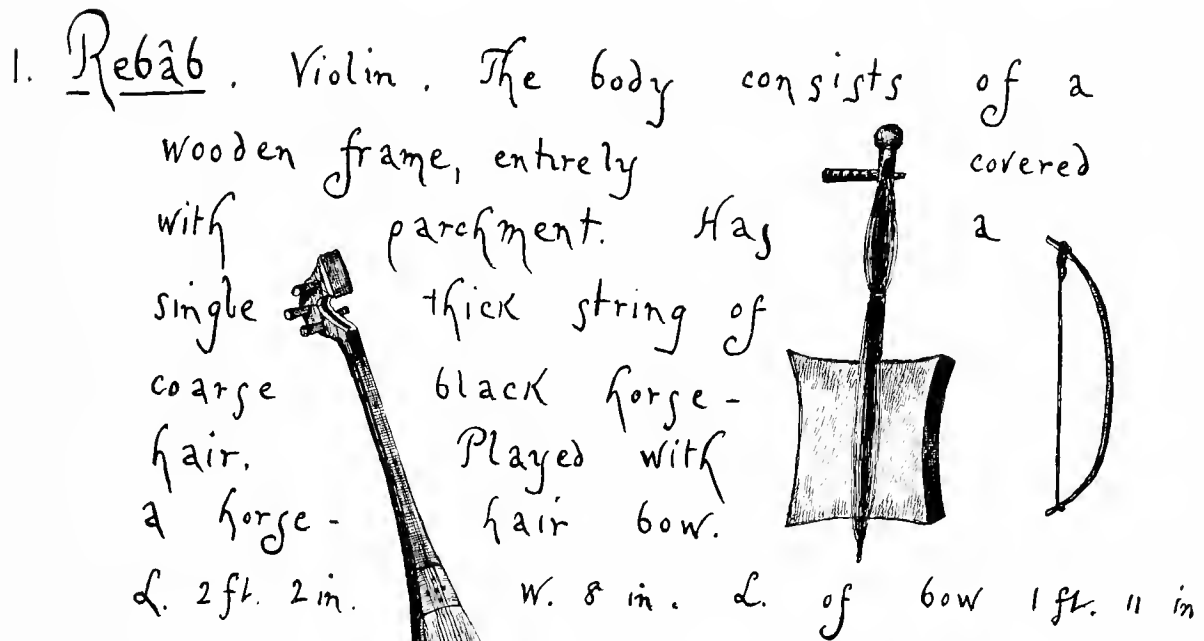 1. Rebâb. Violin. The body consists of a
wooden frame, entirely covered
with parchment. Has a
single thick string of
coarse black horse-
hair. Played with
a horse- hair bow.
L. 2 ft. 2 in. W. 8 in. L. of bow 1 ft. 11 in